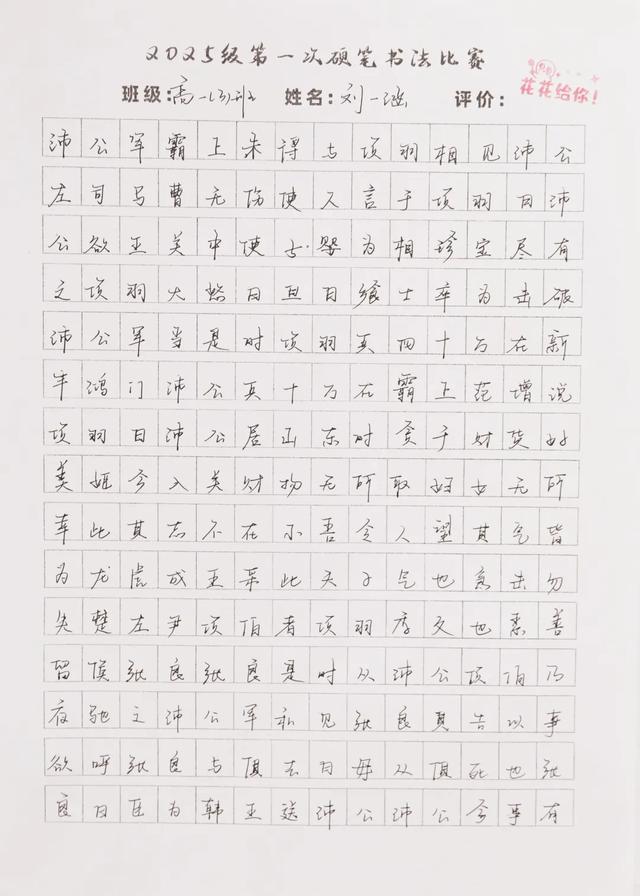 2025级第一次硬笔书法比赛
班级:高一(3)班 姓名:刘一涵 评价:
花花给你!
沛公军霸上未得与项羽相见沛公
左司马曹无伤使人言于项羽曰沛
公欲王关中使子婴为相珍宝尽有
之项羽大怒曰旦日飨士卒为击破
沛公军当是时项羽兵四十万在新
丰鸿门沛公兵十万在霸上范增说
项羽曰沛公居山东时贪于财货好
美姬今入关财物无所取妇女无所
幸此其志不在小吾令人望其气皆
为龙虎成五采此天子气也急击勿
失楚左尹项伯者项羽季父也素善
留侯张良张良是时从沛公项伯乃
夜驰之沛公军私见张良具告以事
欲呼张良与俱去曰毋从俱死也张
良曰臣为韩王送沛公沛公今事有